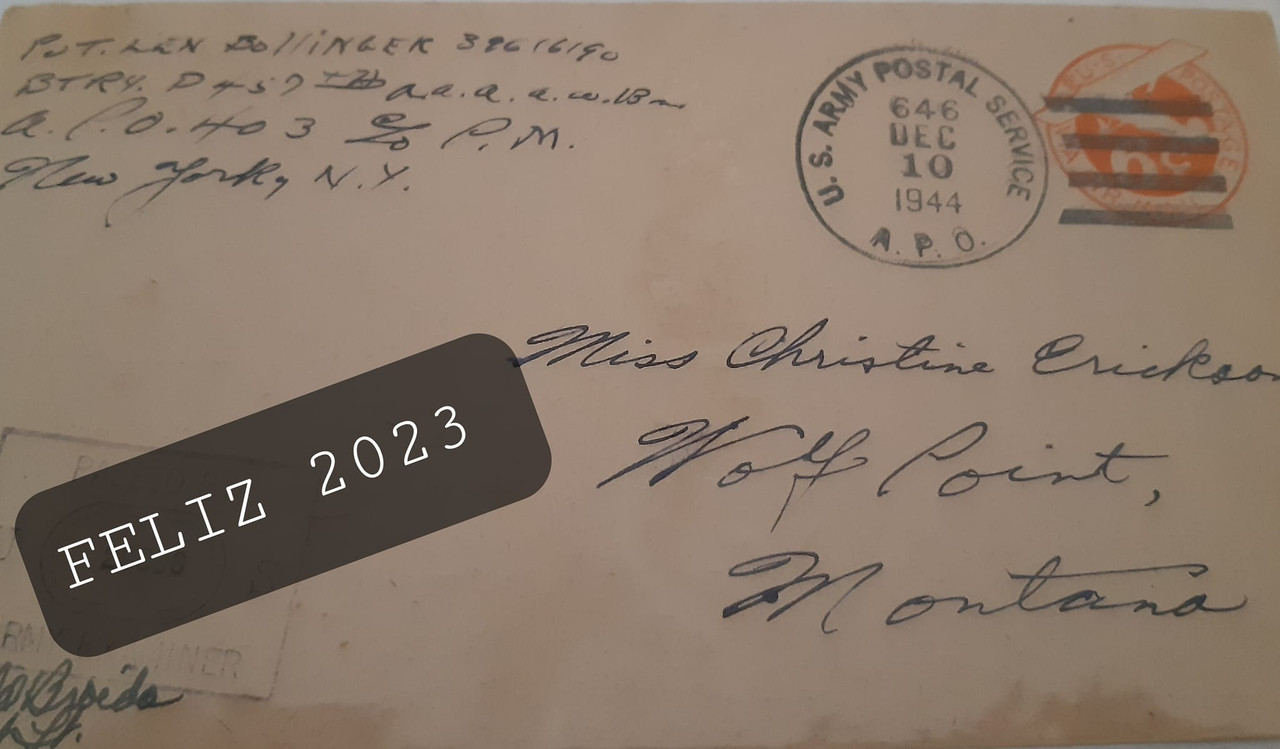 Pvt. Len Bollinger 39616190
BTRY. D 457th a.a.a. a.w. Bn.
A.P.O. 403 c/o P.M.
New York, N.Y.
U.S. ARMY POSTAL SERVICE
646
DEC
10
1944
A.P.O.
U.S. POSTAGE
6c
Miss Christine Erickson
Wolf Point,
Montana
FELIZ 2023